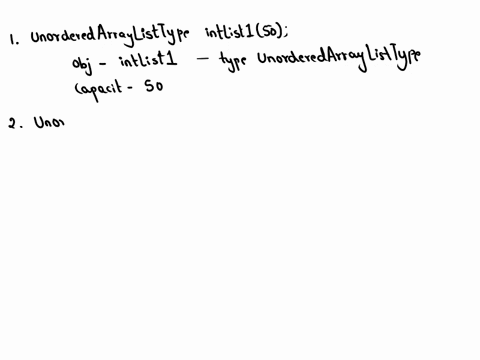 1. UnorderedArrayListType intList1(50);
obj - intList1 - type UnorderedArrayListType
Capacit - 50
2. Unor